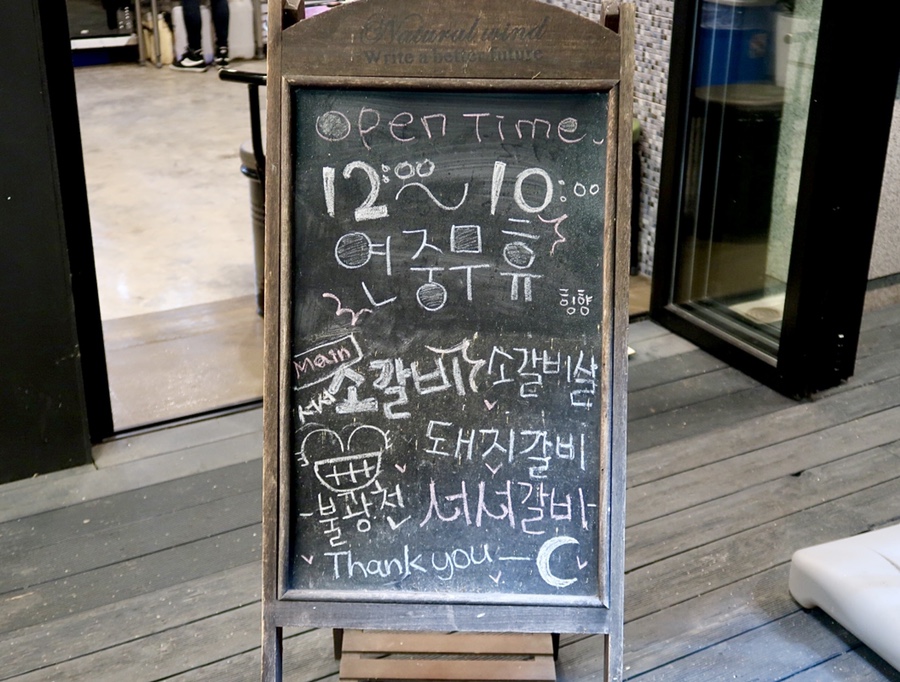 Natural wind
Write a better future
Open Time.
12:00~10:00
연중무휴
힝향
Main
소갈비 소갈비살
서서
돼지갈비
-불광천 서서갈비-
Thank you